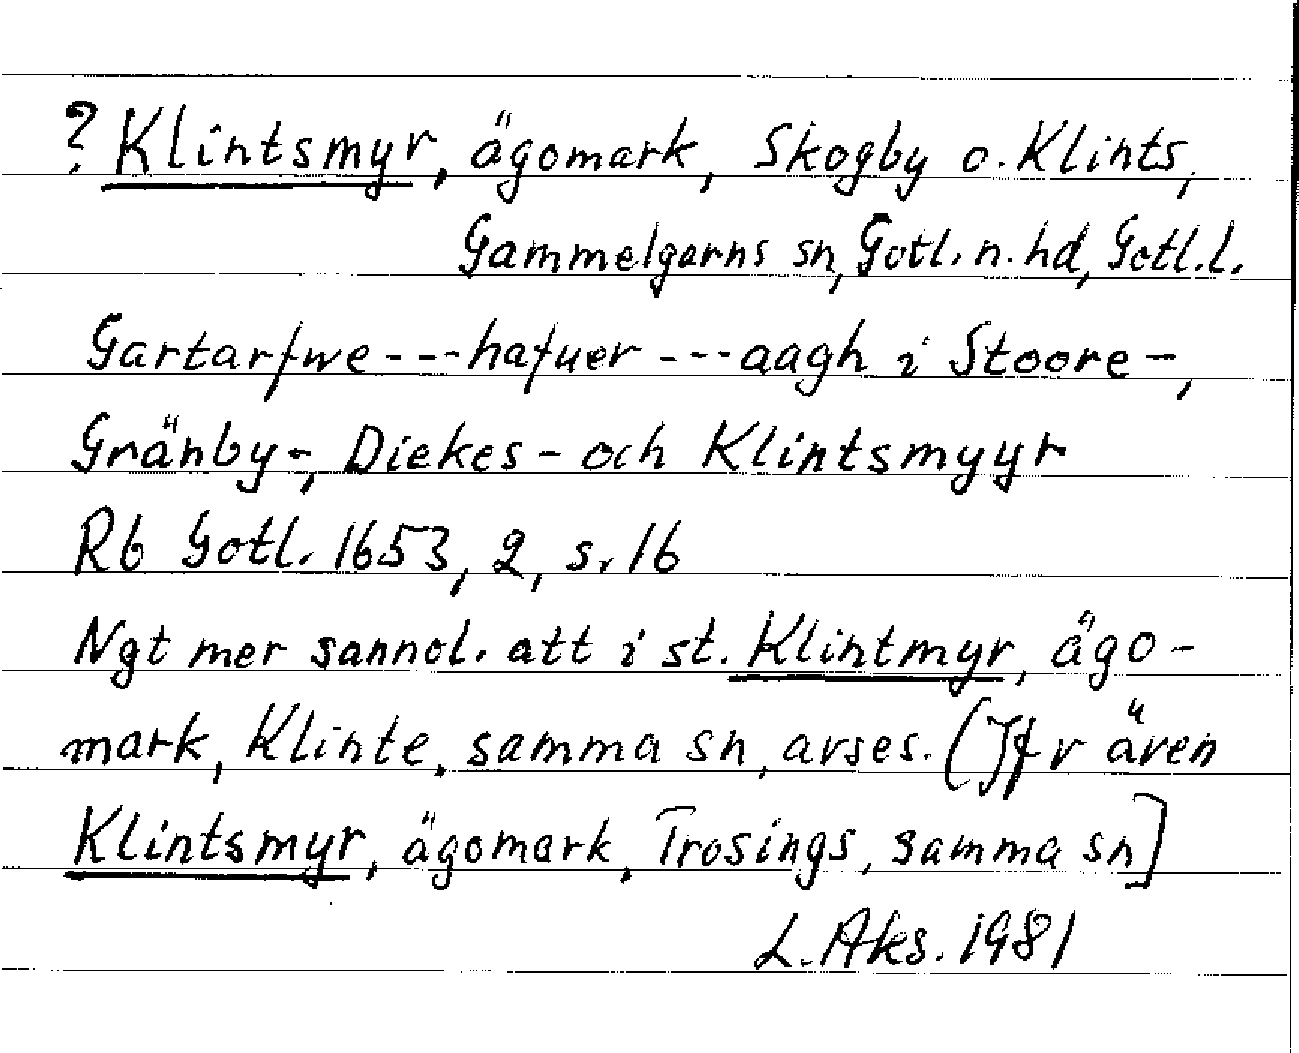 ? Klintsmyr, ägomark, Skogby o. Klints,
Gammelgarns sn, Gotl. n. hd, Gotl. l.
Gartarfwe --- hafuer --- aagh i Stoore-,
Gränby-, Diekes- och Klintsmyyr
Rb Gotl. 1653, 2, s. 16
Ngt mer sannol. att i st. Klintmyr, ägo-
mark, Klinte, samma sn, avses. (Jfr även
Klintsmyr, ägomark, Trosings, samma sn]
L. Aks. 1981